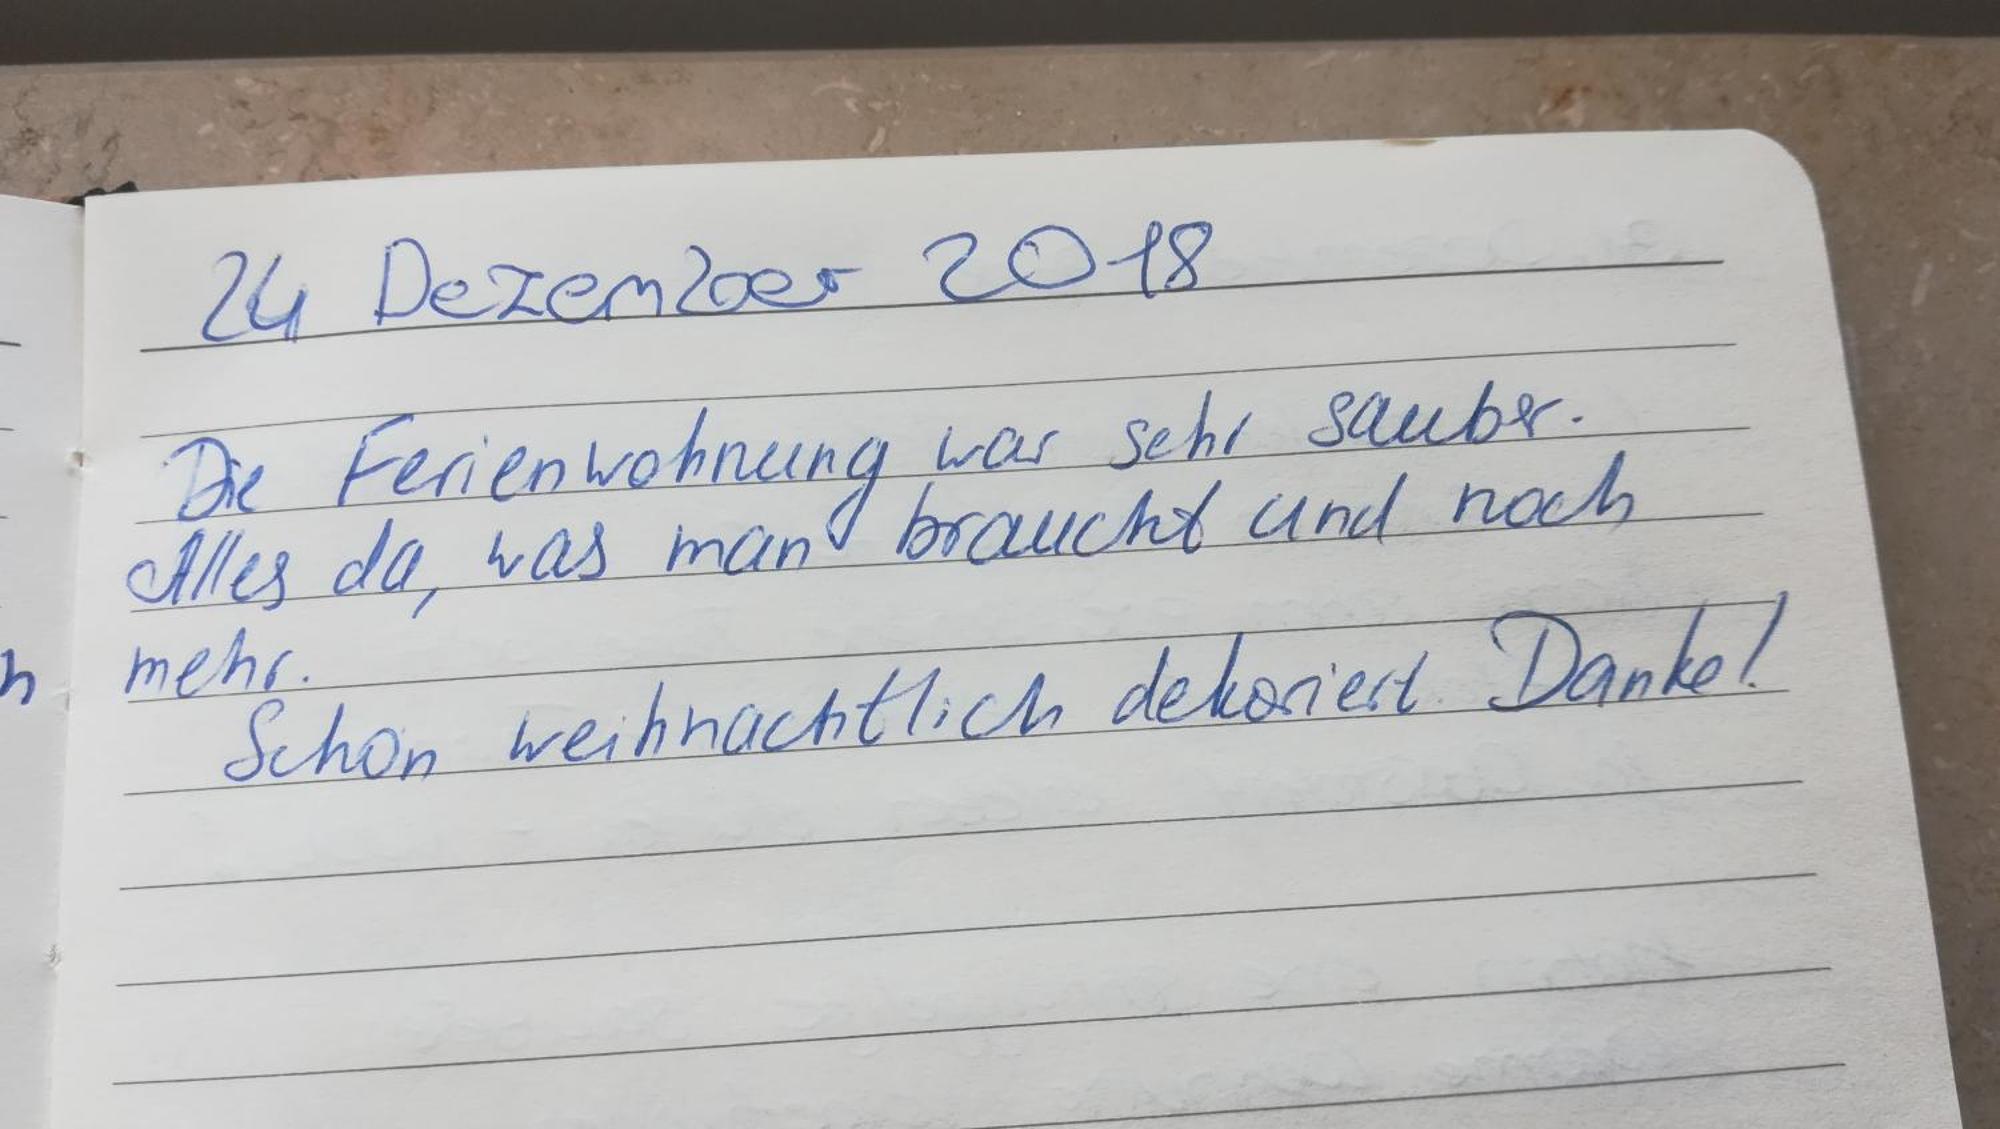 24 Dezember 2018
Die Ferienwohnung war sehr sauber.
Alles da, was man braucht und noch
mehr.
Schon weihnachtlich dekoriert. Danke!